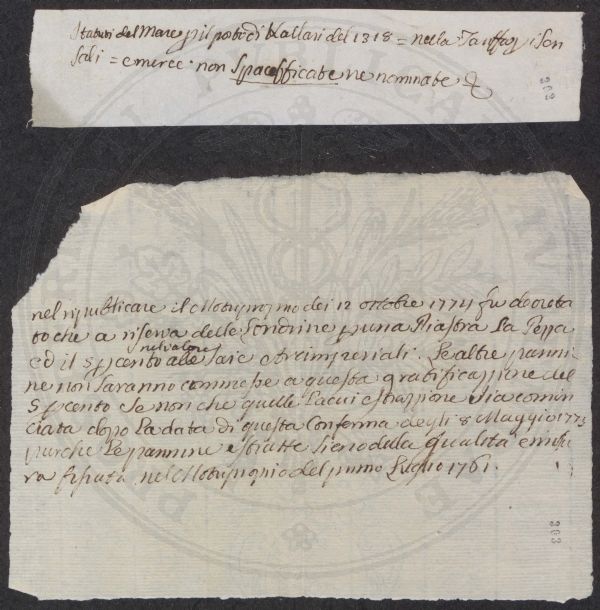 Statuti del Mare p il porto di Kallari del 1318 = nella Tariffa i Sen
sali = e merce non Spacefficate ne nominate &
303
nel ripublicare il Motuproprio dei 12 ottobre 1774 fu decreta
to che a riserva delle Londrine p una Piastra la Pezza
nel valore
ed il 5 p cento alle Saie e Imperiali. Le altre panni
ne non Saranno commesse a questa gratificazione del
5 p cento Se non che quelle La cui estrazione Sia comin
ciata dopo La data di questa Conferma degli 8 Maggio 1773
purche Le pannine estratte Sieno della qualità e misu
ra fissata nel Motuproprio del primo Luglio 1761.
303